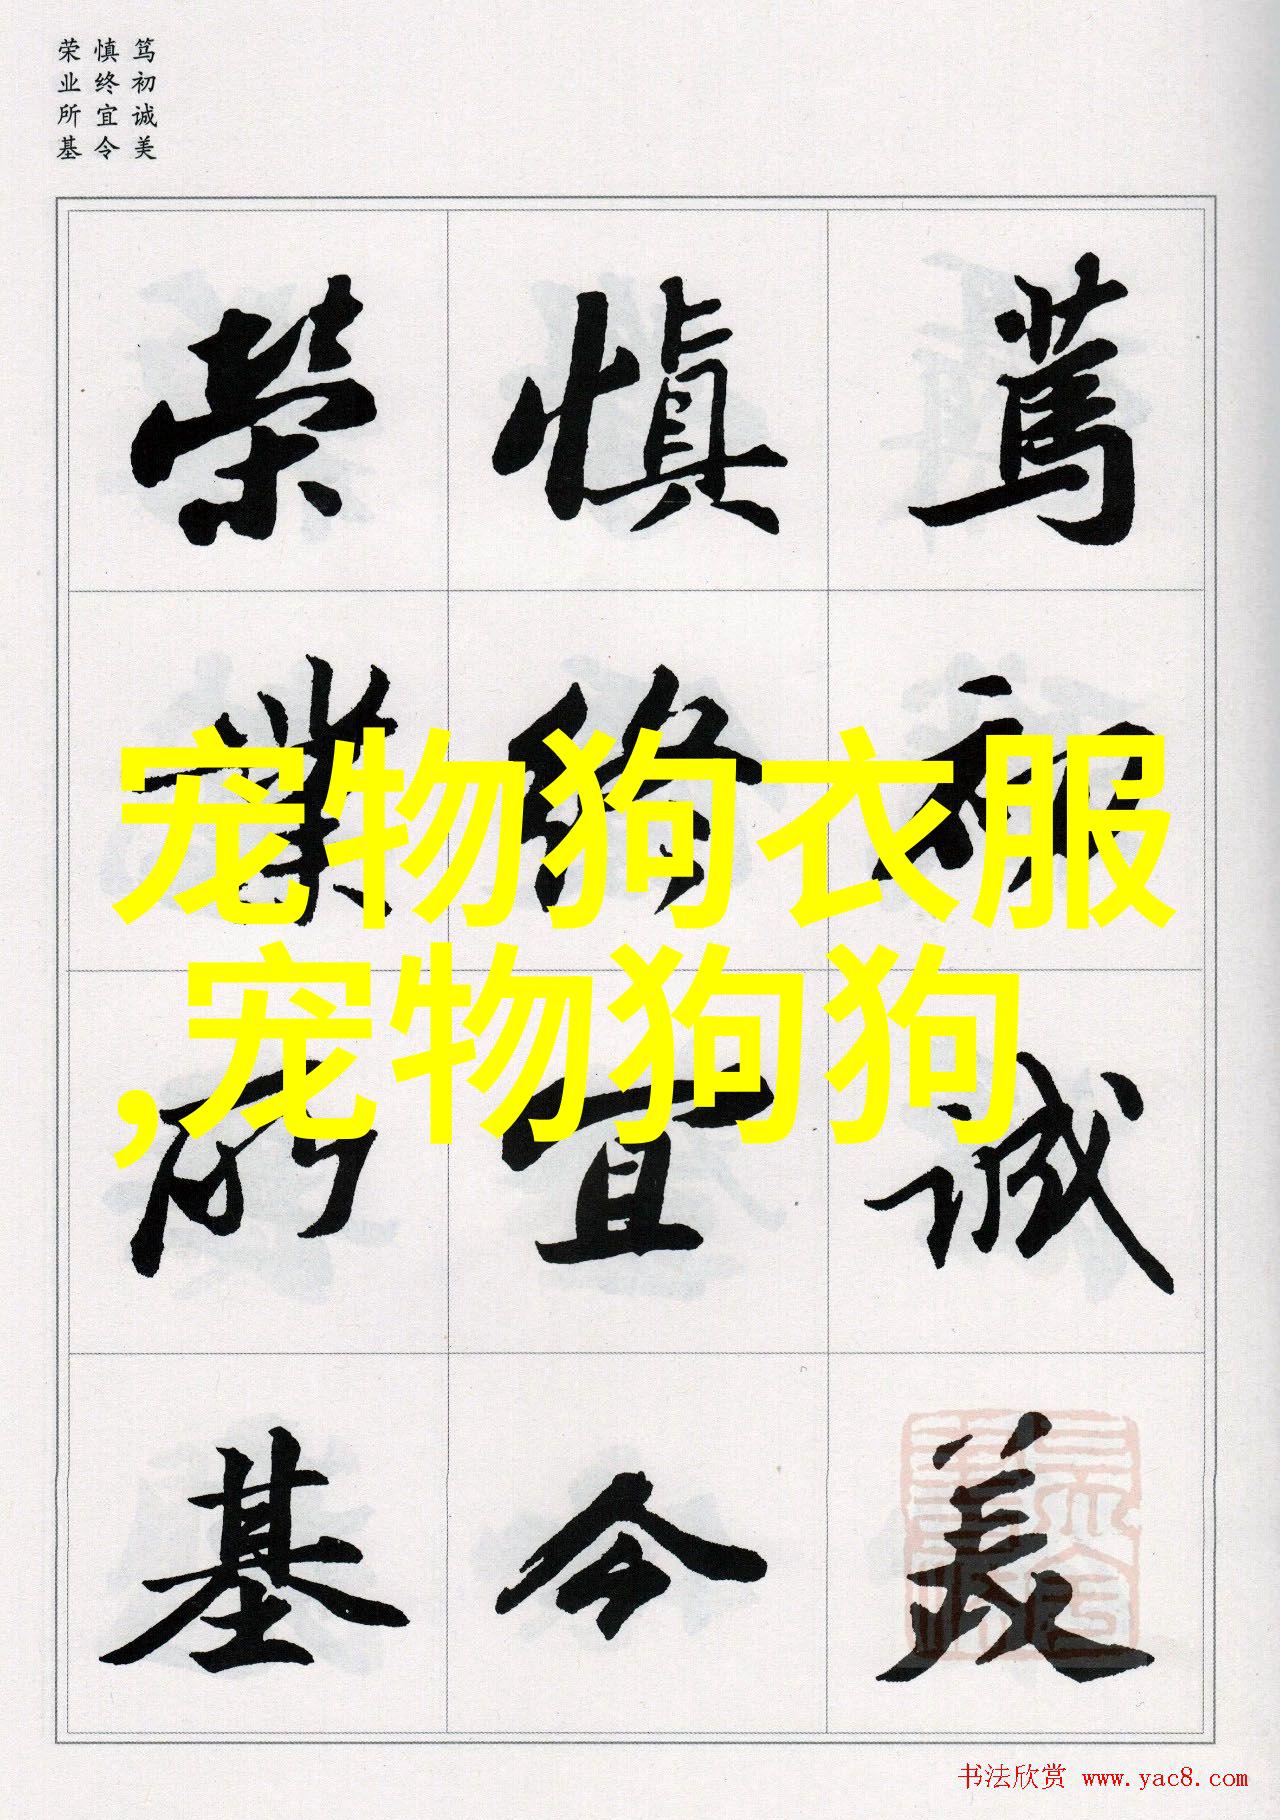 笃初诚美
慎终宜令
荣业所基
篤初誠美
慎終宜令
榮業所基
宠物狗衣服
,宠物狗狗
书法欣赏 www.yac8.com